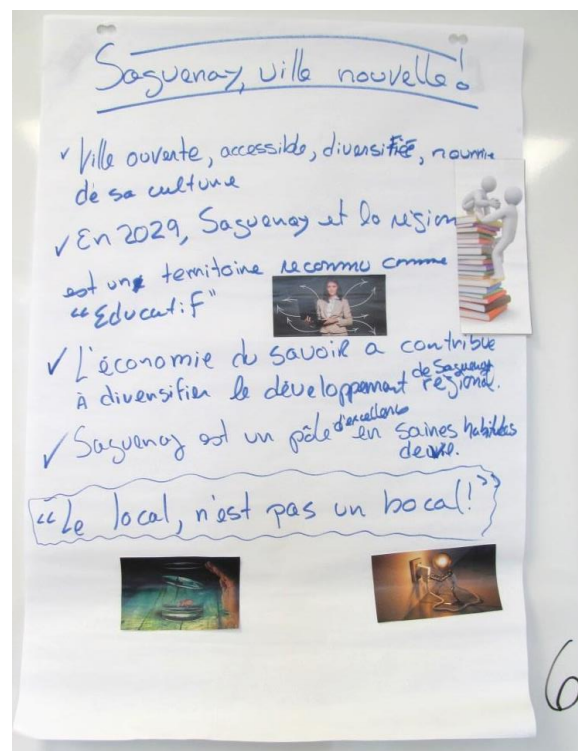 Saguenay, ville nouvelle!
✓ Ville ouverte, accessible, diversifiée, nourrie
de sa culture
✓ En 2029, Saguenay et la région
est un territoire reconnu comme
"Éducatif"
✓ L'économie du savoir a contribué
à diversifier le développement de Saguenay régional.
✓ Saguenay est un pôle d'excellence en saines habitudes
de vie.
"Le local, n'est pas un bocal!"
6